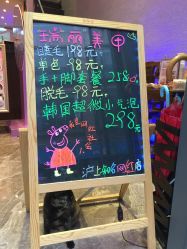 瑞丽美甲
睫毛98元,
单色98元,
手+脚套餐258
脱毛98元,
韩国超微小气泡
298元
社会
沪上408网红店